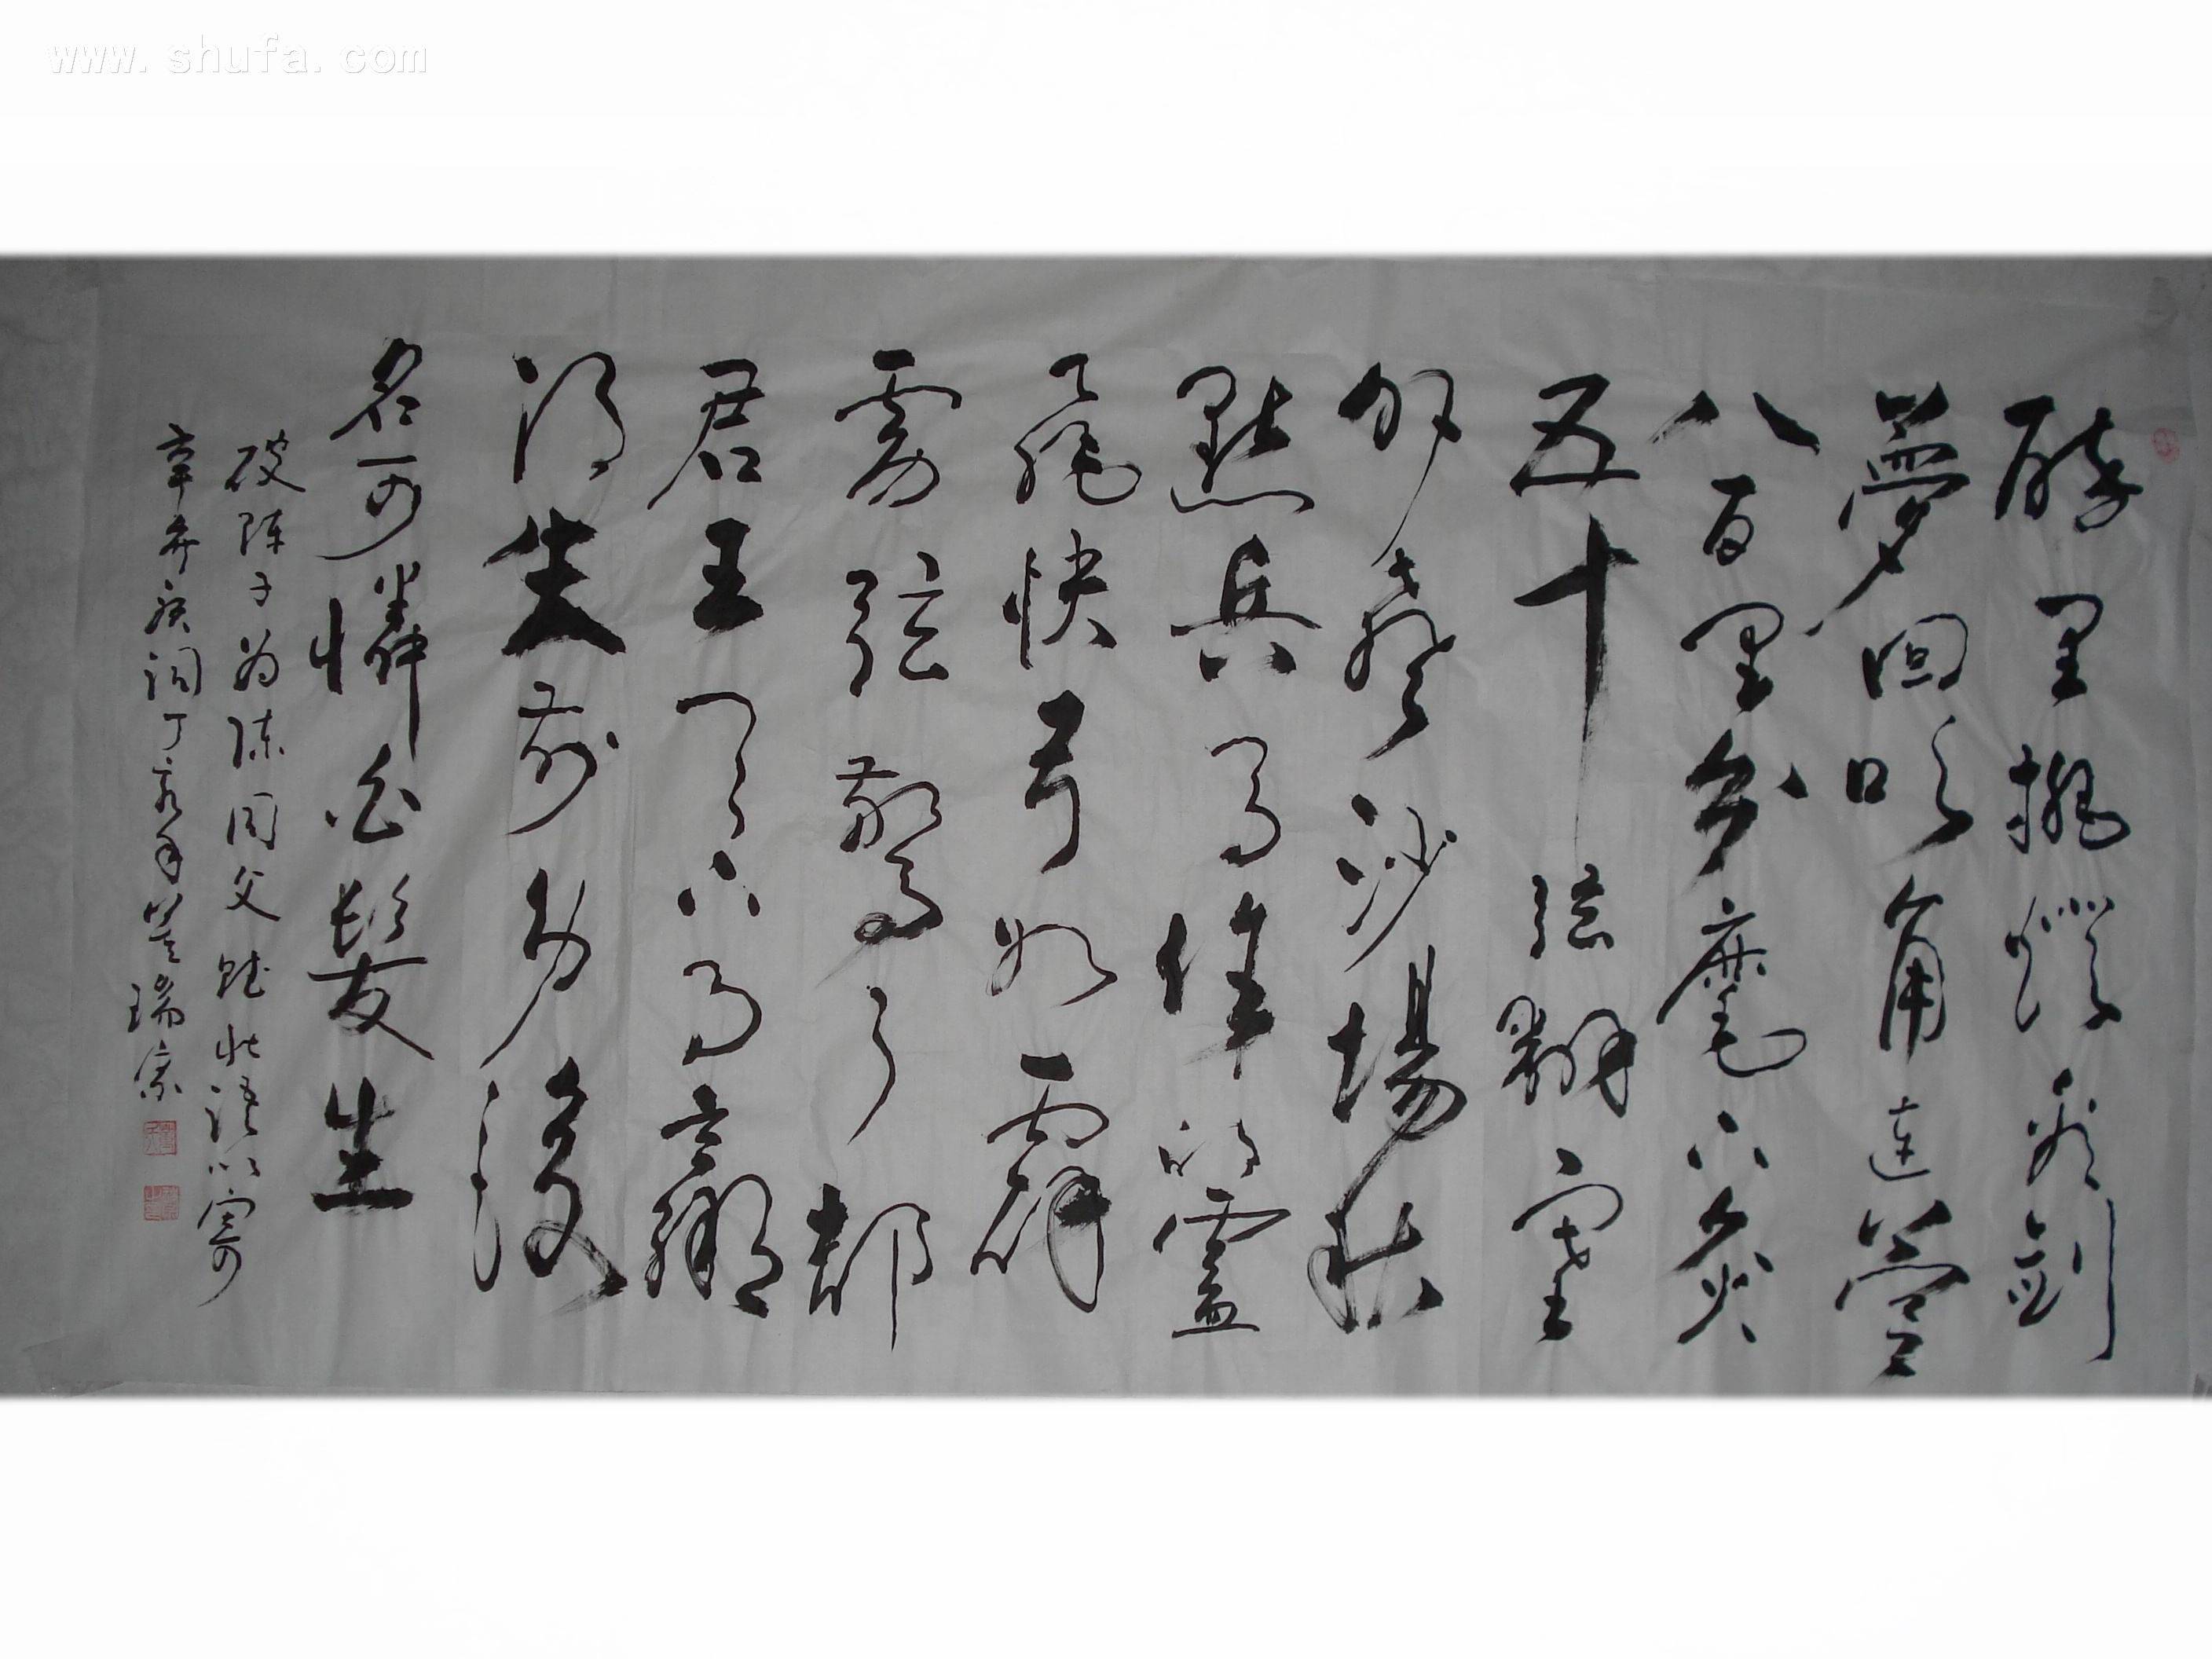 www.shufa.com
醉里挑燈看劍
夢回吹角連營
八百里分麾下炙
五十弦翻塞
外聲沙場秋
點兵馬作的盧
飛快弓如霹
靂弦驚了却
君王天下事贏
得生前身後
名可憐白髮生
破陣子为陈同父賦壯語以寄
辛弃疾词丁亥年瑞宗